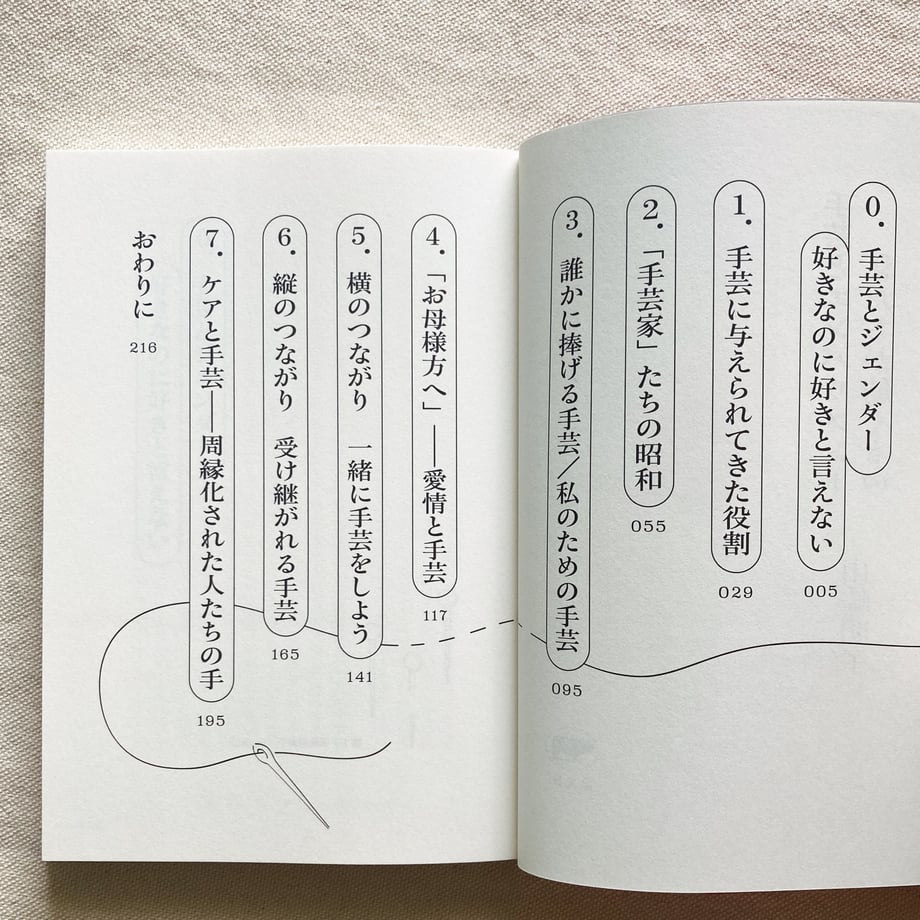 0．手芸とジェンダー
好きなのに好きと言えない
005
1．手芸に与えられてきた役割
029
2．「手芸家」たちの昭和
055
3．誰かに捧げる手芸／私のための手芸
095
4．「お母様方へ」――愛情と手芸
117
5．横のつながり　一緒に手芸をしよう
141
6．縦のつながり　受け継がれる手芸
165
7．ケアと手芸――周縁化された人たちの手
195
おわりに
216